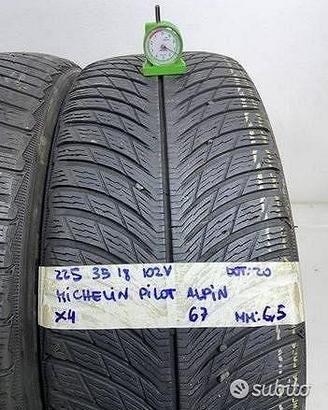 225 35 18 102V DOT:20
MICHELIN PILOT ALPIN
X4 67 MM: 6,5
subito